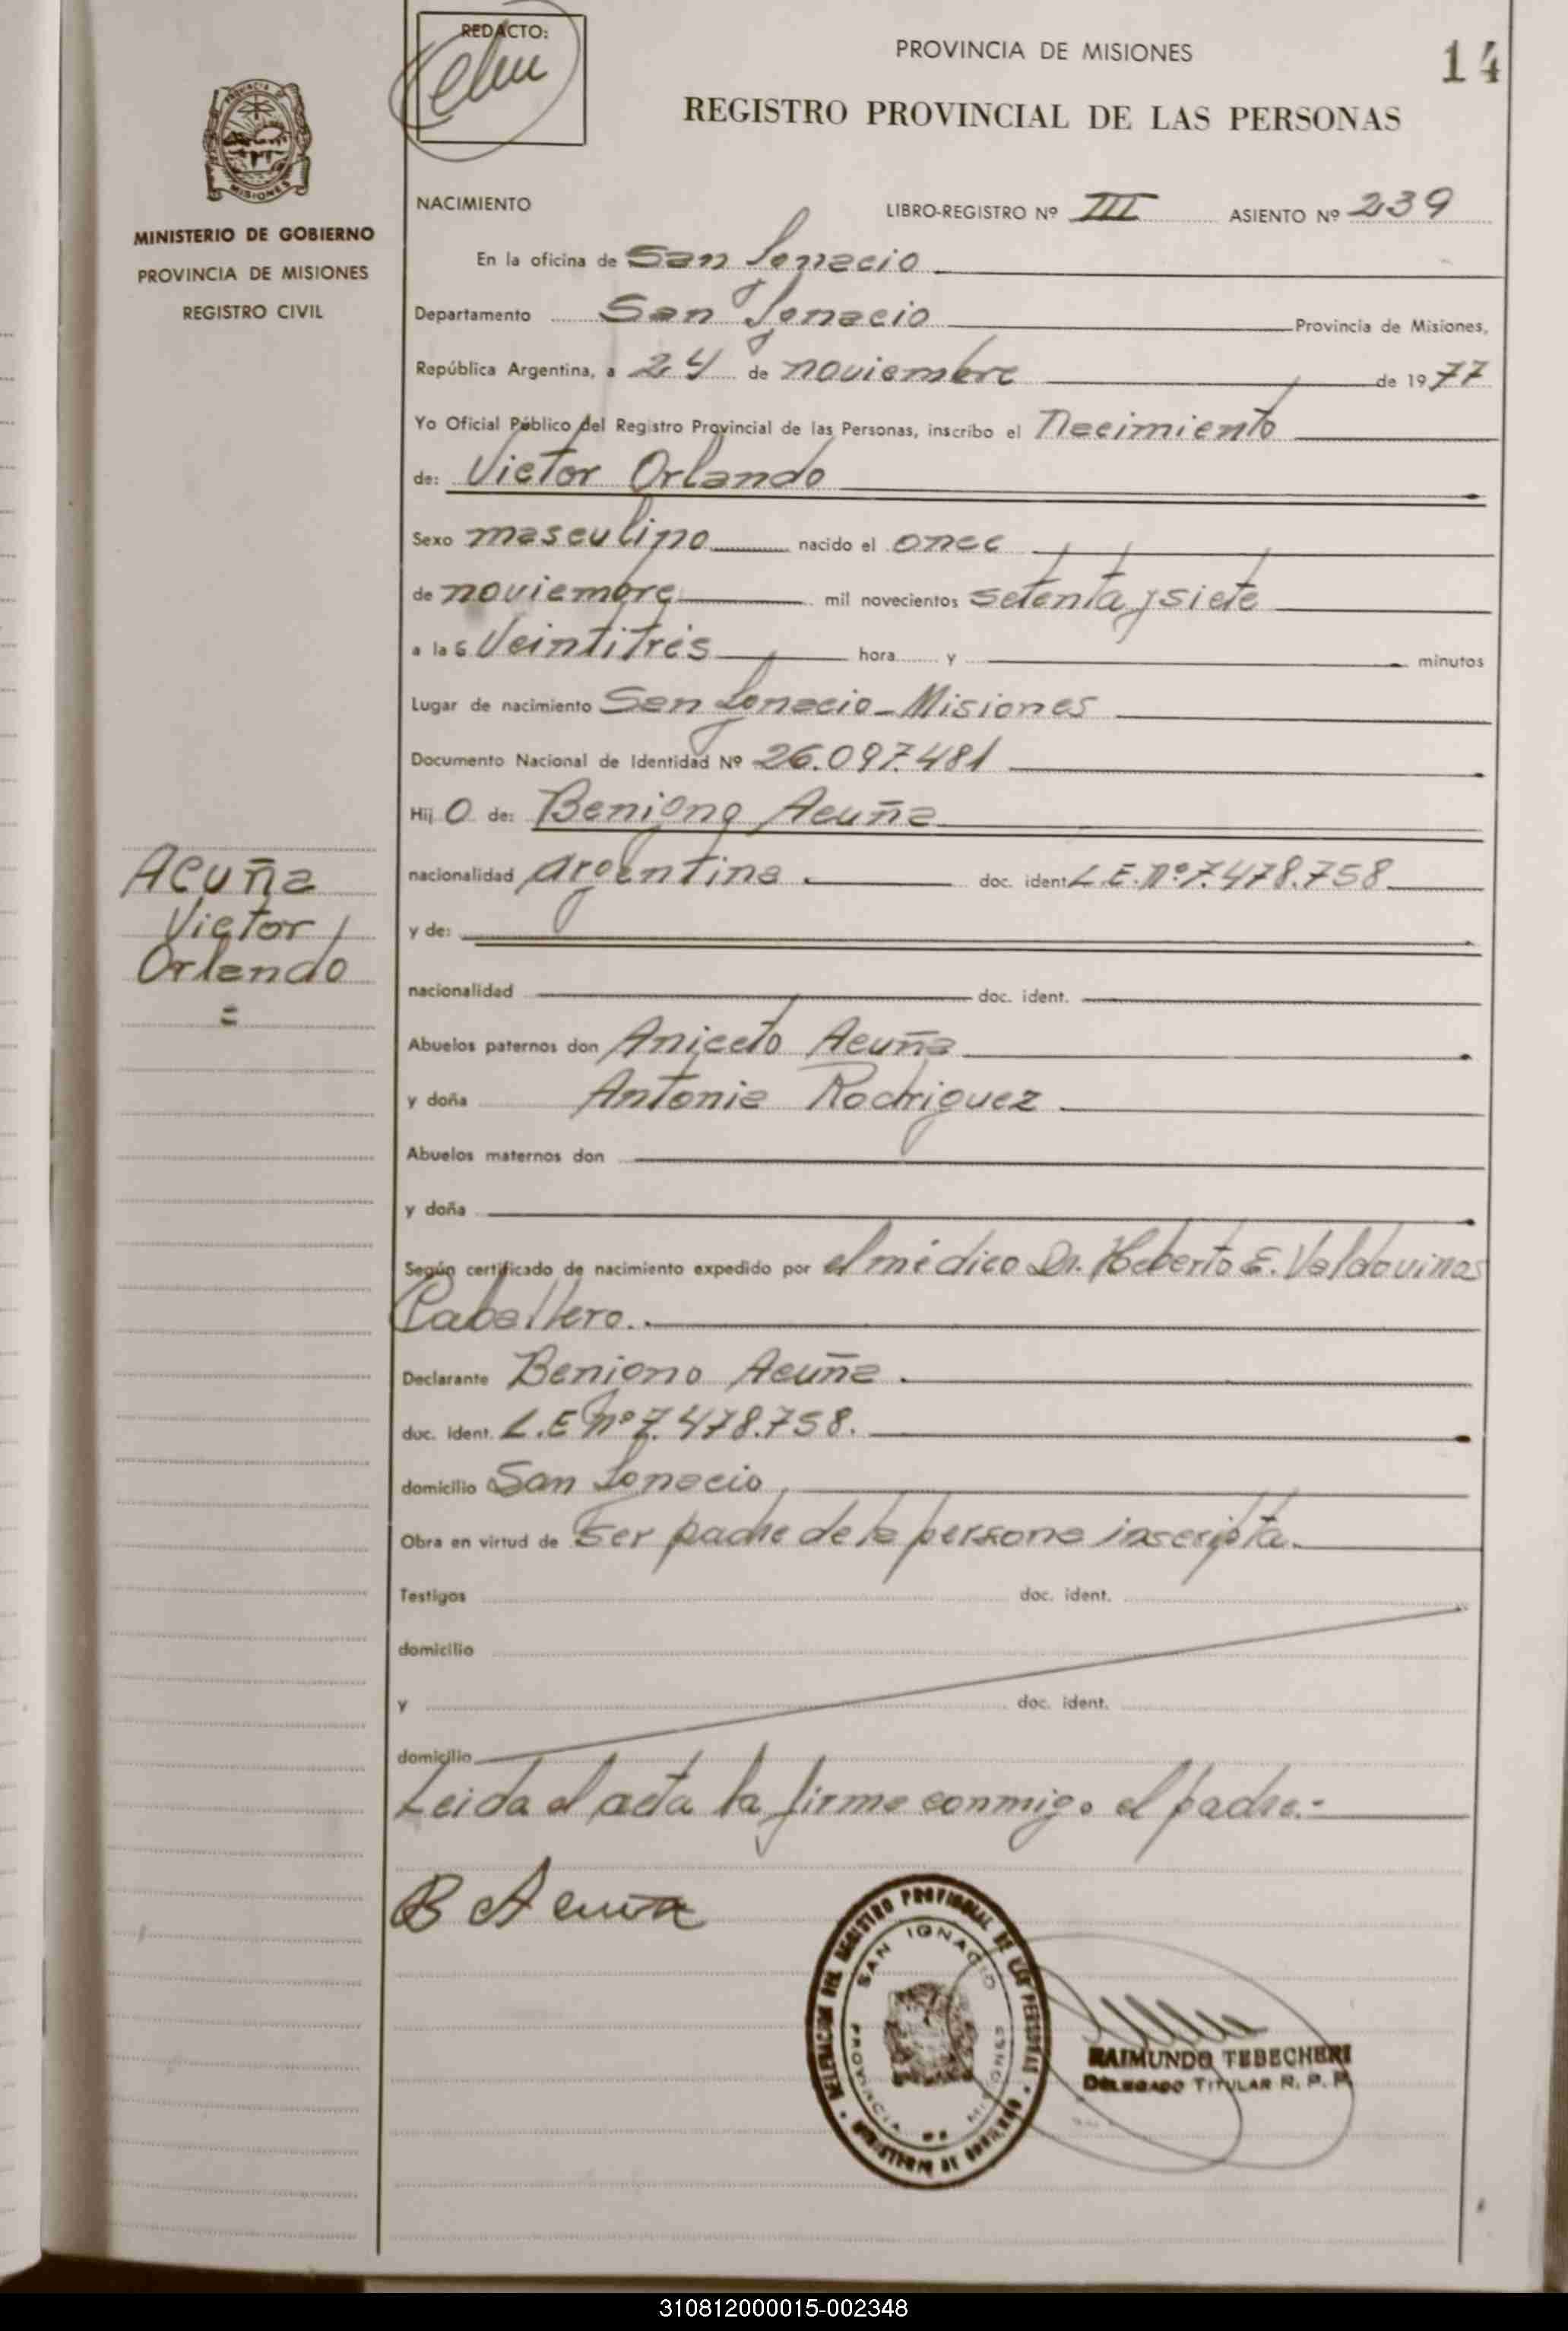 REDACTO:
PROVINCIA DE MISIONES
14
REGISTRO PROVINCIAL DE LAS PERSONAS
MISIONES
MINISTERIO DE GOBIERNO
PROVINCIA DE MISIONES
REGISTRO CIVIL
NACIMIENTO LIBRO-REGISTRO Nº III ASIENTO Nº 239
En la oficina de San Ignacio
Departamento San Ignacio Provincia de Misiones,
República Argentina, a 24 de noviembre de 1977
Yo Oficial Público del Registro Provincial de las Personas, inscribo el Nacimiento
de: Victor Orlando
Sexo masculino nacido el once
de noviembre mil novecientos setenta y siete
a las Veintitrés hora y minutos
Lugar de nacimiento San Ignacio - Misiones
Documento Nacional de Identidad Nº 26.097.481
Hijo de: Benigno Acuña
nacionalidad argentina. doc. ident. L.E. nº 7.478.758
y de:
nacionalidad doc. ident.
Acuña
Victor
Orlando
=
Abuelos paternos don Aniceto Acuña
y doña Antonia Rodriguez
Abuelos maternos don
y doña
Según certificado de nacimiento expedido por el médico Dr. Heberto E. Valdovinos
Caballero.
Declarante Benigno Acuña.
doc. ident. L.E nº 7.478.758.
domicilio San Ignacio
Obra en virtud de ser padre de la persona inscripta.
Testigos doc. ident.
domicilio
y doc. ident.
domicilio
Leida el acta la firma conmigo el padre.-
B Acuña
DELEGACION DEL REGISTRO PROVINCIAL DE LAS PERSONAS
SAN IGNACIO
PROVINCIA DE MISIONES
MINISTERIO DE GOBIERNO
RAIMUNDO TEBECHERI
DELEGADO TITULAR R. P. P.
310812000015-002348